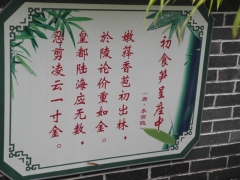 初食笋呈座中
(唐·李商隐)
嫩箨香苞初出林,
於陵论价重如金。
皇都陆海应无数,
忍剪凌云一寸金。